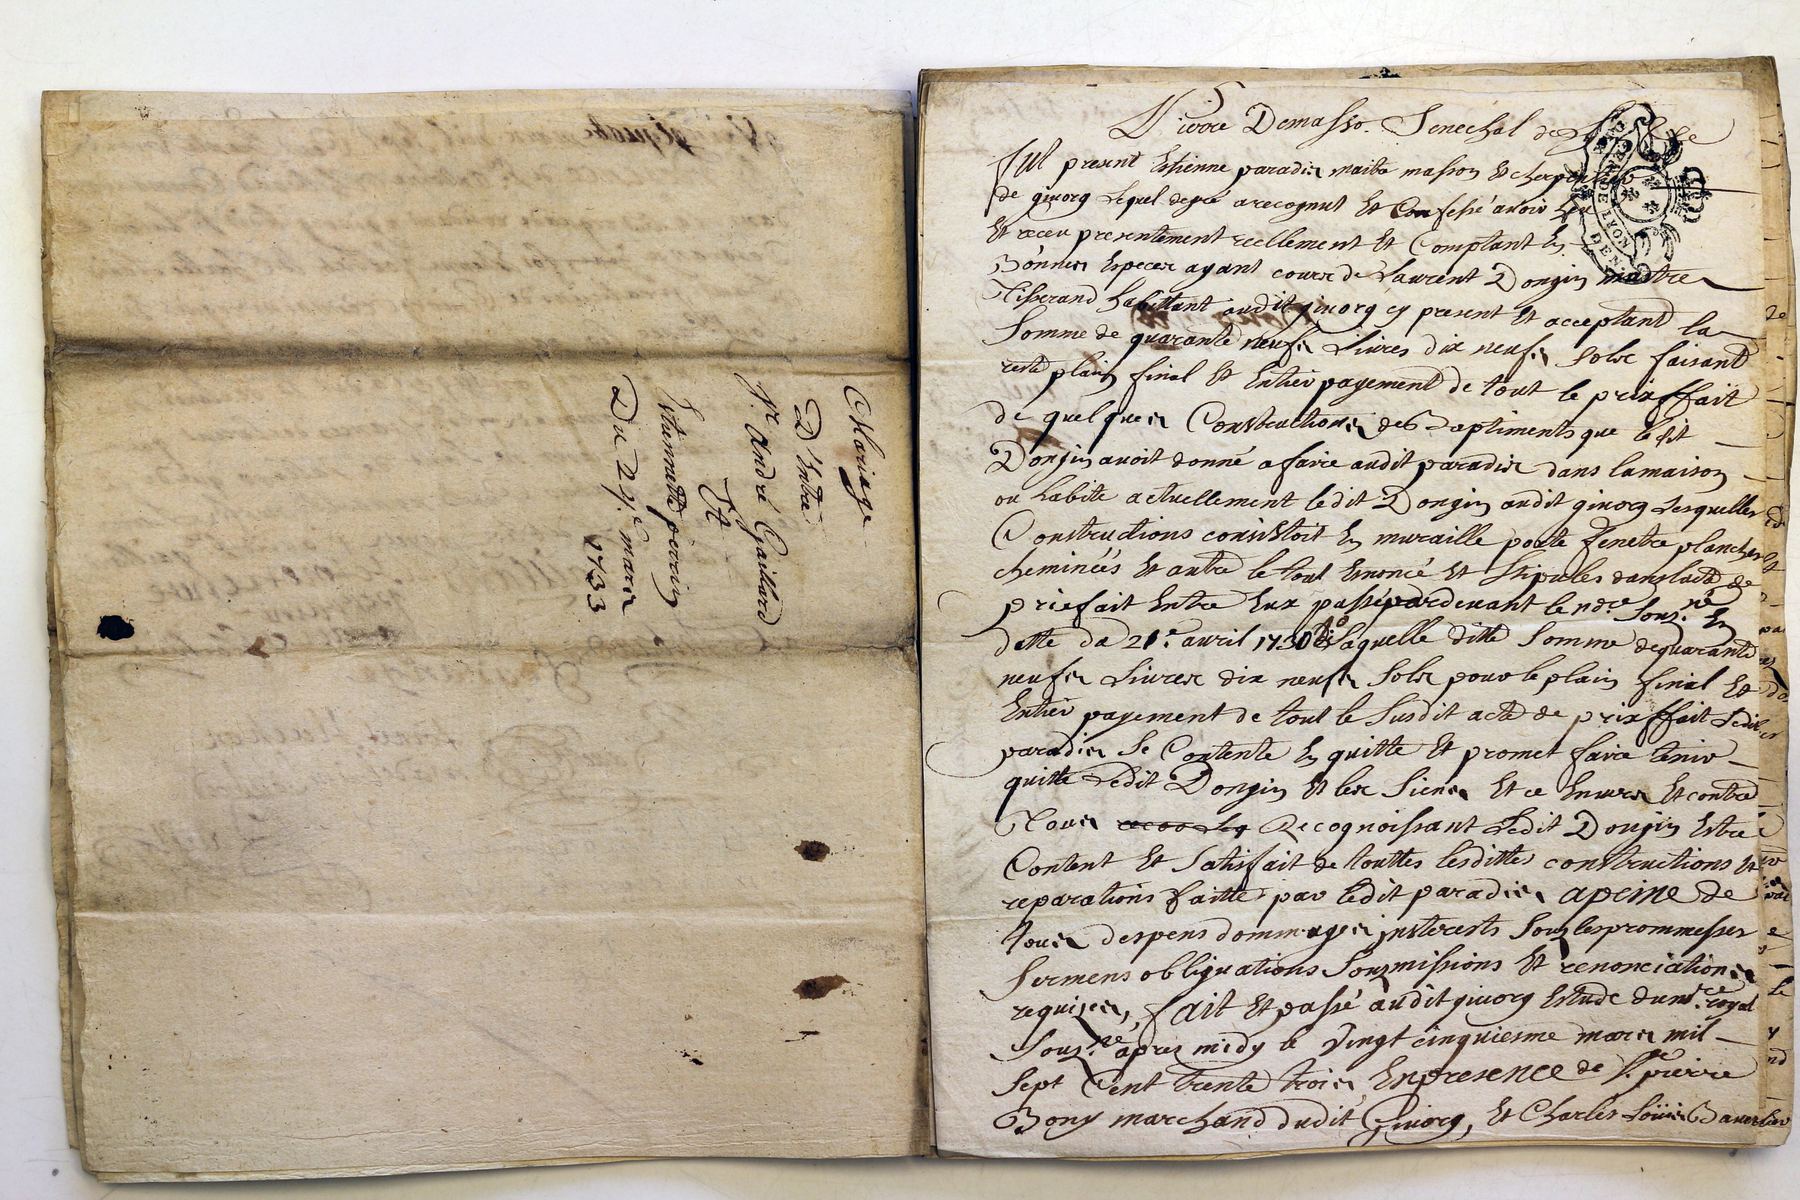 Mariage
D'Entre
Sr. André Gaillard
Et
Etiennette perrin
Du 24e. mars
1733
Pierre Demasso Senechal de
fut present Estienne paradis maitre masson Et charpentier
de givorg Lequel de gré a recognut Et Confessé avoir Eu
Et receu presentement reellement Et Comptant En
Bonnes Especes ayant cours de Laurent Donzin maitre
Tisserand habittant audit givorg cy present Et acceptant la
Somme de quarante neufs Livres dix neufs Sols faisant
reste plain final Et Entier payement de tout le prix ffait
de quelques Constructions des Baptiments que ledit
Donzin avoit donné a faire audit paradis dans la maison
ou habite actuellement ledit Donzin audit givorg Lesquelles
Constructions consistoit En muraille porte fenetre plancher
cheminées Et autre le tout Enoncé Et Stipules dans lacte de
priefait Entre Eux passé pardevant le nore Souz.né En
datte du 21e. avril 1730 Laquelle ditte Somme de quarante
neufs Livres dix neufs Sols pour le plain final Et
Entier payement de tout le Susdit acte de prix ffait Ledit
paradis Se Contente En quitte Et promet faire tenir
quitte Ledit Donzin Et les Siens Et ce Envers Et contre
Tous Recognoissant Ledit Donzin Estre
Content Et Satisfait de touttes lesdittes constructions Et
reparations faitte par ledit paradis, a peine de
tous despens dommages jnterests Souz les prommesses
Sermens obligations Souzmissions Et renonciations
requises, fait Et passé audit givorg Estude du nre. royal
Souz.né apres midy le vingt cinquiesme mars mil
Sept Cent trente trois, En presence de Sr. pierre
Bony marchand dudit Givorg, Et Charles Loüis